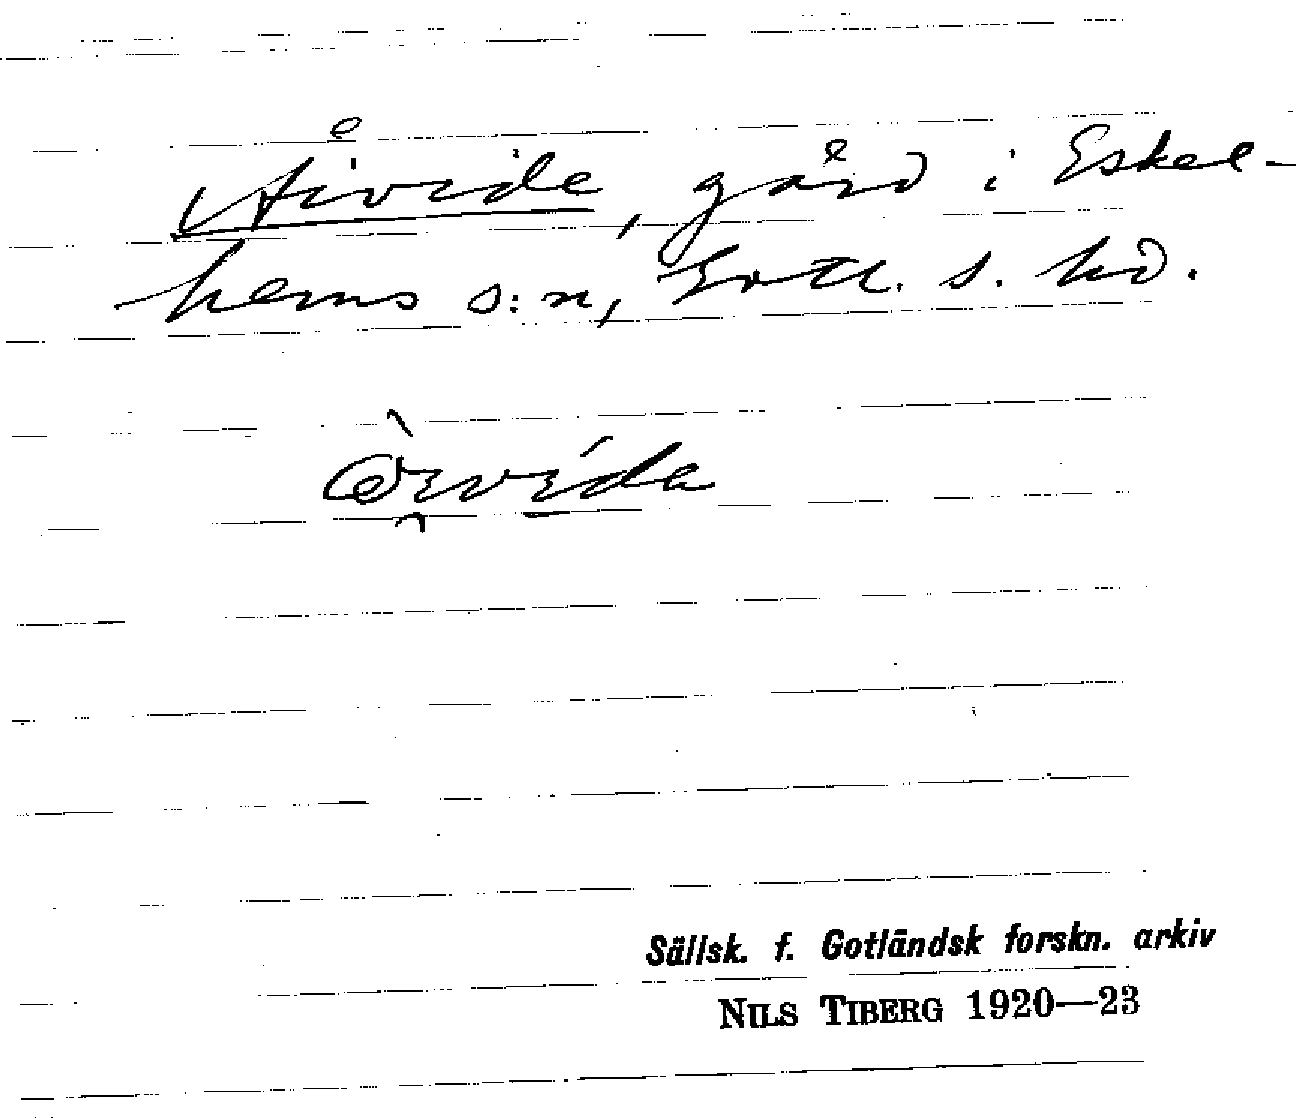 Åivide, gård i Eskel-
hems s:n, Gotl. s. hd.
Sällsk. f. Gotländsk forskn. arkiv
NILS TIBERG 1920—23